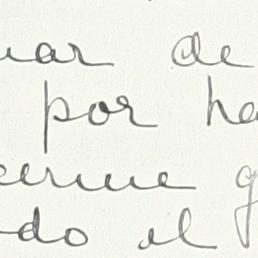 uar de
por ha
cerme g
do el